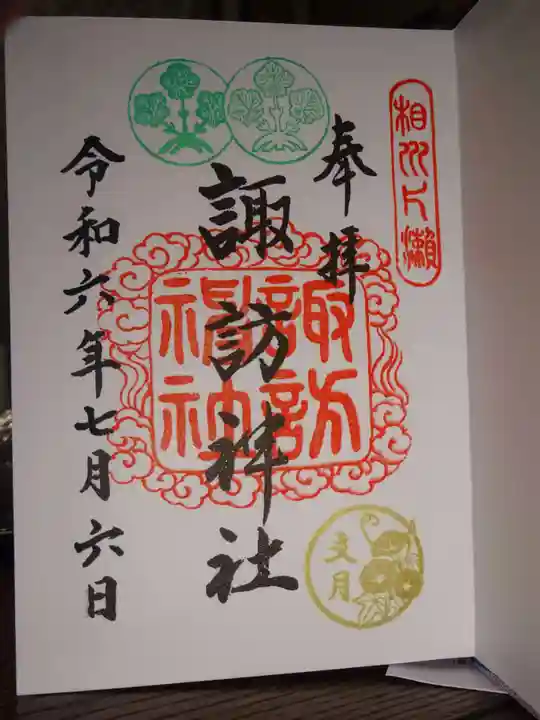 相州片瀬
奉拝
諏訪神社
諏訪
神社
文月
令和六年七月六日